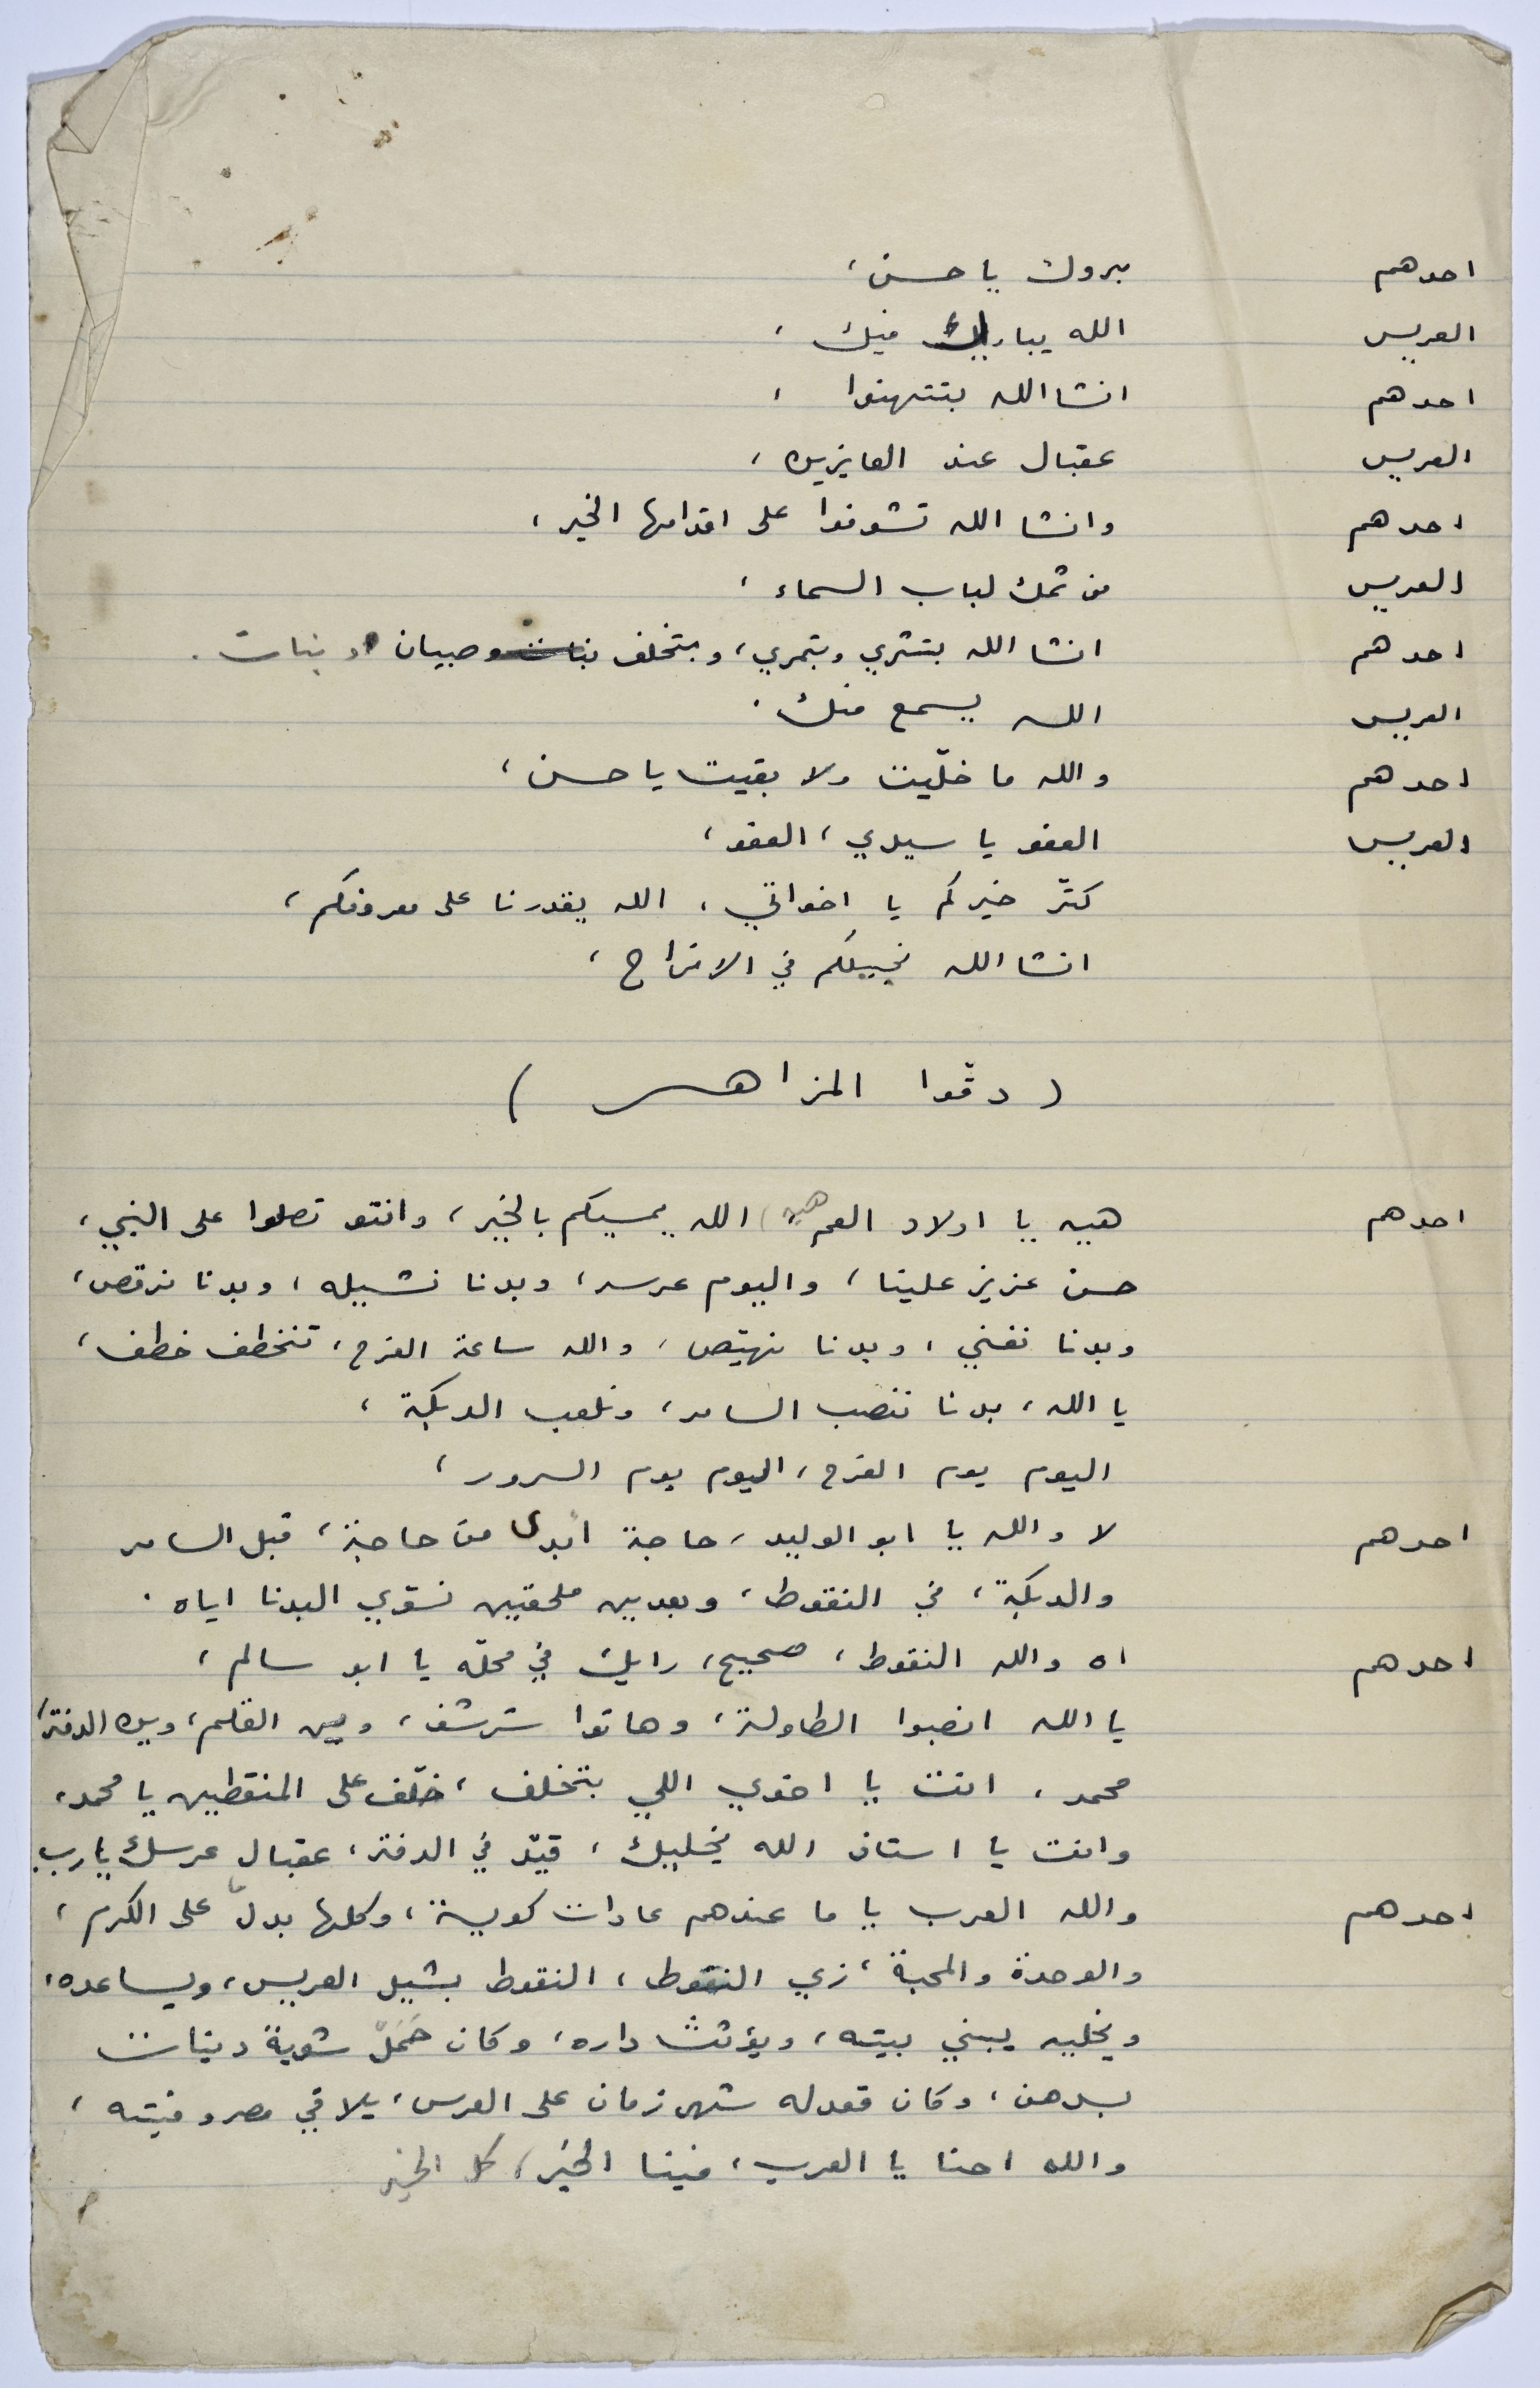 احدهم مبروك يا حسن،
العريس الله يبارك فيك،
احدهم انشاالله بتتهنوا،
العريس عقبال عند العايزين،
احدهم وانشا الله تشوفوا على اقدامها الخير،
العريس من تمك لباب السماء،
احدهم انشا الله بتشري وبتمري، وبتخلف بنات وصبيان وبنات.
العريس الله يسمع منك.
احدهم والله ما خلّيت ولا بقيت يا حسن،
العريس العفو يا سيدي، العفو،
كتّر خيركم يا اخواتي، الله يقدرنا على معروفكم،
انشاالله نجيلكم في الافراح،
(دقّوا المزاهر)
احدهم هييه يا اولاد العم هييه، الله يمسيكم بالخير، وانتو تصلوا على النبي،
حسن عزيز علينا، واليوم عرسه، وبدنا نشيله، وبدنا نرقص،
وبدنا نغني، وبدنا نهيّص، والله ساعة الفرح، تنخطف خطف،
يا الله، بدنا ننصب السامر، ونلعب الدبكة،
اليوم يوم الفرح، اليوم يوم السرور،
احدهم لا والله يا ابو الوليد، حاجة ابدى من حاجة، قبل السامر
والدبكة، في النقوط، وبعدين ملحقين نسوّي البدنا اياه.
احدهم اه والله النقوط، صحيح، رايك في محلّه يا ابو سالم،
يا الله انصبوا الطاولة، وهاتوا شرشف، وين القلم، وين الدفتر،
محمد، انت يا اخوي اللي بتخلف، خلّف على المنقطين يا محمد،
وانت يا استاذ الله يخليك، قيّد في الدفتر، عقبال عرسك يا رب.
احدهم والله العرب يا ما عندهم عادات كويسة، وكلها بدلّ على الكرم،
والوحدة والمحبة، زي النقوط، النقوط بشيل العريس، ويساعده،
ويخليه يبني بيته، ويؤثث داره، وكان حَمَلّ شوية دينات
بسدهن، وكان قعدله شهر زمان على العرس، يلاقي مصروفيته،
والله احنا يا العرب، فينا الخير، كل الخير